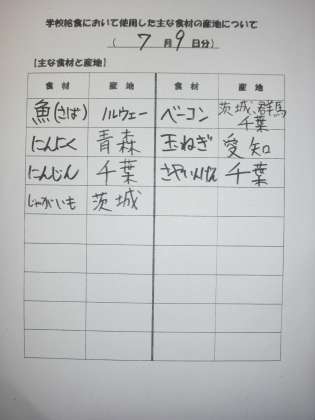 学校給食において使用した主な食材の産地について
（ 7 月 9 日分）
【主な食材と産地】
食材 産地 食材 産地
魚(さば) ノルウェー ベーコン 茨城、群馬
千葉
にんにく 青森 玉ねぎ 愛知
にんじん 千葉 さやいんげん 千葉
じゃがいも 茨城